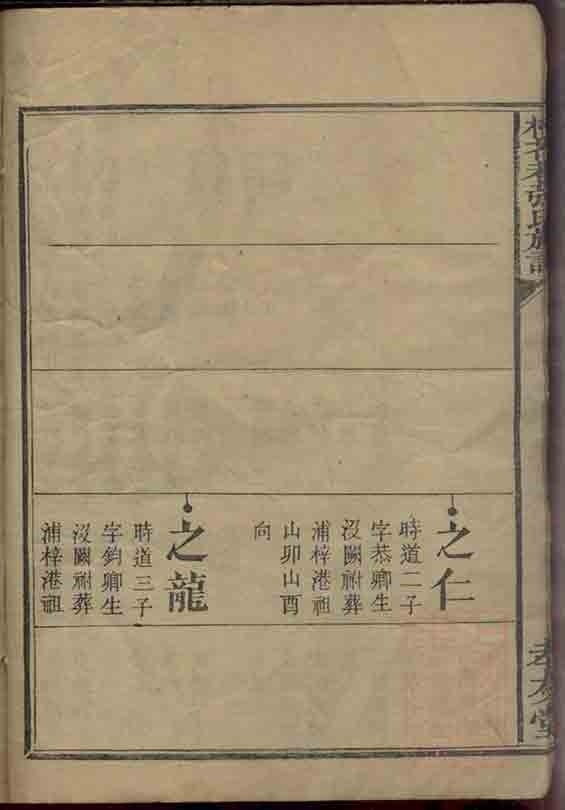 張氏族譜
之仁
時道二子
字恭卿生
沒闕祔葬
浦梓港祖
山卯山酉
向
之龍
時道三子
字鈞卿生
沒闕祔葬
浦梓港祖
孝友堂